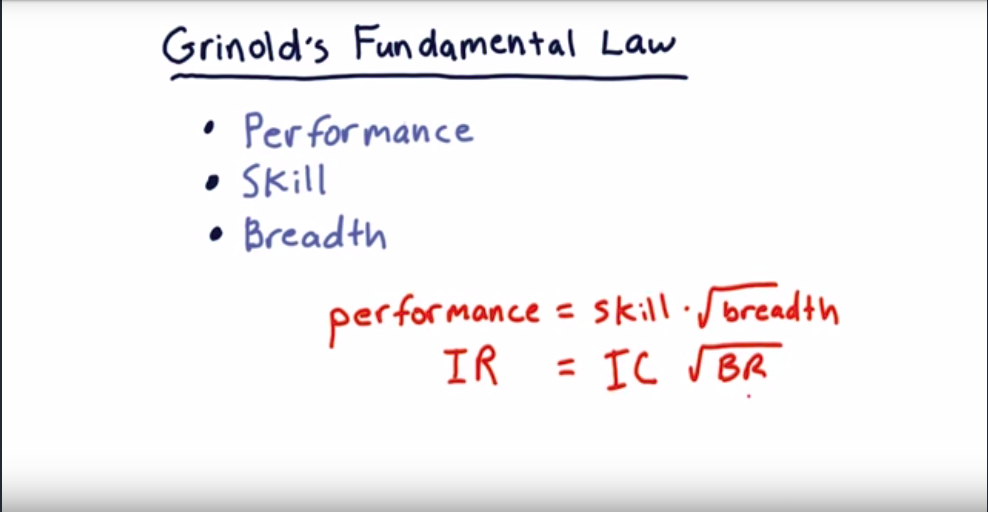 Grinold's Fundamental Law
• Performance
• Skill
• Breadth
performance = skill · √breadth
IR = IC √BR